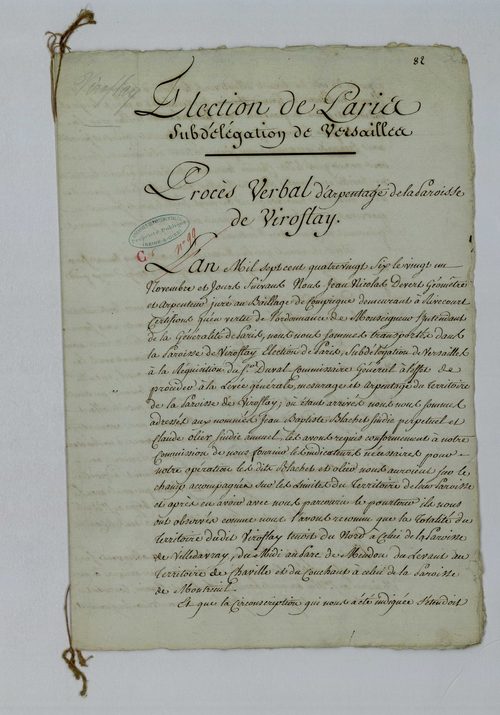 82
Viroflay
Election de Paris
Subdélégation de Versailles
Procès Verbal d'arpentage de la Paroisse
de Viroflay.
C. 1 n° 90
L'an Mil sept cent quatrevingt Six le vingt un
Novembre et Jours Suivans Nous Jean Nicolas Devert Géometre
et Arpenteur juré au Bailliage de Compiegne demeurant à Rivecourt
Certifions qu'en vertu de l'ordonnance de Monseigneur l'Intendant
de la Généralité de Paris, nous nous sommes transportés dans
la Paroisse de Viroflay Election de Paris, Subdélégation de Versailles
à la Requisition du Sr. Duval Commissaire Général à l'effet de
procéder à la Levée générale, mesurage et arpentage du territoire
de la Paroisse de Viroflay; où étant arrivés nous nous sommes
adressés aux nommés Jean Baptiste Blachet Sindic perpetuel et
Claude olier Sindic annuel, les avons requis conformement à notre
Commission de nous fournir les indicateurs nécessaires pour
notre opération les dits Blachet et olier nous auroient sur le
champ accompagnés sur les Limites du Territoire de leur Paroisse
et après en avoir avec nous parcouru le pourtour ils nous
ont observés comme nous l'avons reconnu que la totalité du
territoire dudit Viroflay tenoit du Nord à Celui de la Paroisse
de Villedavray, du Midi au Parc de Meudon du Levant au
Territoire de Chaville et du Couchant à celui de la Paroisse
de Montreuil.
Et que la Circonscription qui nous a été indiquée S'étendoit